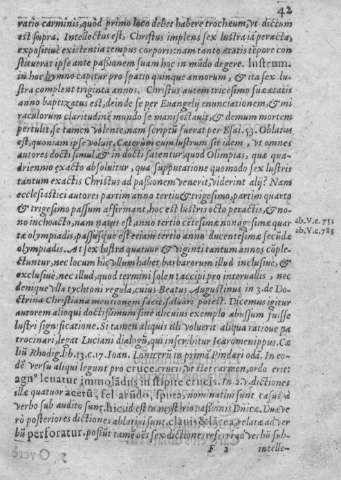 42
ratio carminis, quòd primo loco debet habere trocheum, vt dictum
est supra. Intellectus est, Christus implens sex lustra iã peracta,
expositiuè existentia tempus corporis: nam tanto ætatis tēpore con
stituerat ipse ante passionem suam hoc in mūdo degere. Lustrum.
in hoc hymno capitur pro spatio quinque annorum, & ita sex lu-
stra complent triginta annos. Christus autem tricesimo suæ ætatis
anno baptizatus est, deinde se per Euangelij enunciationem, & mi
raculorum claritudinẽ mundo se manifestauit, & demum mortem
pertulit, se tamen volente, nam scriptũ fuerat per Esai. 53. Oblatus
est, quoniam ipse voluit. Cæterùm cum lustrum sit idem, vt omnes
autores docti simul & indocti fatentur, quod Olimpias, quæ qua-
driennio exacto absoluitur, qua supputatione quomodo sex lustris
tantum exactis Christus ad passionem venerit, viderint alij? Nam
ecclesiastici autores partim anno tertio & trigesimo, partim quarto
& trigesimo passum affirmant, hoc est lustris octo peractis, & no-
no inchoato, nam natus est anno tertio cētesimæ nonagesimæ quar-
tæ olympiadis, passusque est etiam tertio anno ducentesimæ secūdæ
olympiadis. At sex lustra quatuor & viginti tantum annos cōple-
ctuntur, nec locum hic vllum habet barbarorum illud inclusiuè, &
exclusiuè, nec illud, quod termini solent accipi pro interuallis, nec
denique vlla tychoni regula, cuius Beatus Augustinus in 3. de Do
ctrina Christiana mentionem facit, saluari potest. Dicemus igitur
autorem alioqui doctissimum sine alicuius exemplo abusum fuisse
lustri significatione. Si tamen aliquis illi voluerit aliqua ratione pa
trocinari, legat Luciani dialogũ, qui inscribitur Icaromenippus. Cæ
liũ Rhodig. lib. 13. c. 17. Ioan. Lonicerũ in primã Pindari odã. In eo-
dē versu aliqui legunt pro cruce cruci, vt stet carmen, ordo erit:
agnus leuatur immoladus in stipite crucis. In 27. dictiones
illæ quatuor acetũ, fel arũdo, sputa, nominatiui sunt casus, &
verbo sub audito sunt, hic, id est in mysterio passionis Dñicæ. Duæ ve
rò posteriores dictiones ablatiui sunt, clauis, lãcea, relatæ ad ver
bũ perforatur, possũt tamē oēs sex dictiones referri ad verbũ sub-
F 2 intelle-
ab. V. c. 751
ab. V. c. 785